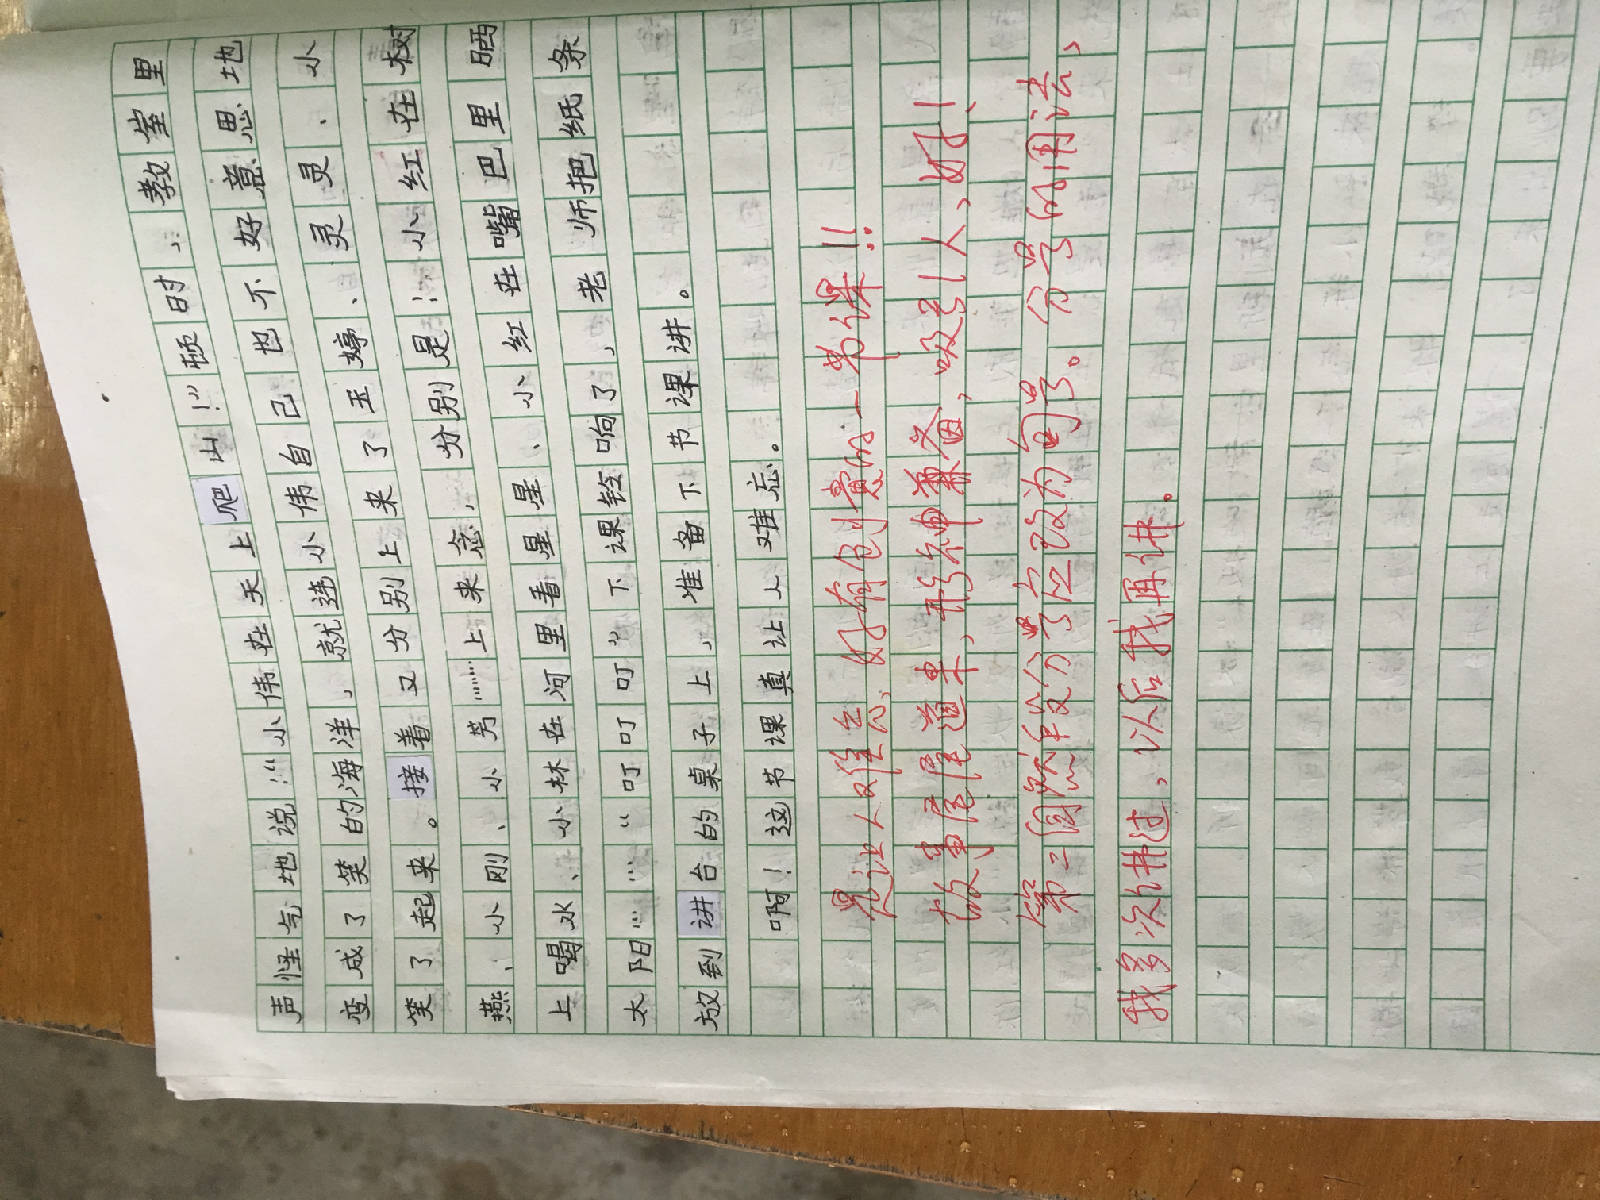 声怪气地说:“小伟在天上爬山!”顿时,教室里
变成了笑的海洋,就连小伟自己也不好意思地
笑了起来。接着又分别上来了玉婷、灵灵、小
燕、小刚、小芳……上来念,分别是:小红在树
上喝水、小林在河里看星星、小红在嘴巴里晒
太阳……“叮叮叮”下课铃响了,老师把纸条
放到讲台的桌子上,准备下节课讲。
啊!这节课真让人难忘。
是让人难忘的,好有创意的一节课!!
故事层层道来,形神兼备,吸引人、好!
第二自然段分号应改为句号。分号的用法,
我多次讲过,以后我再讲。